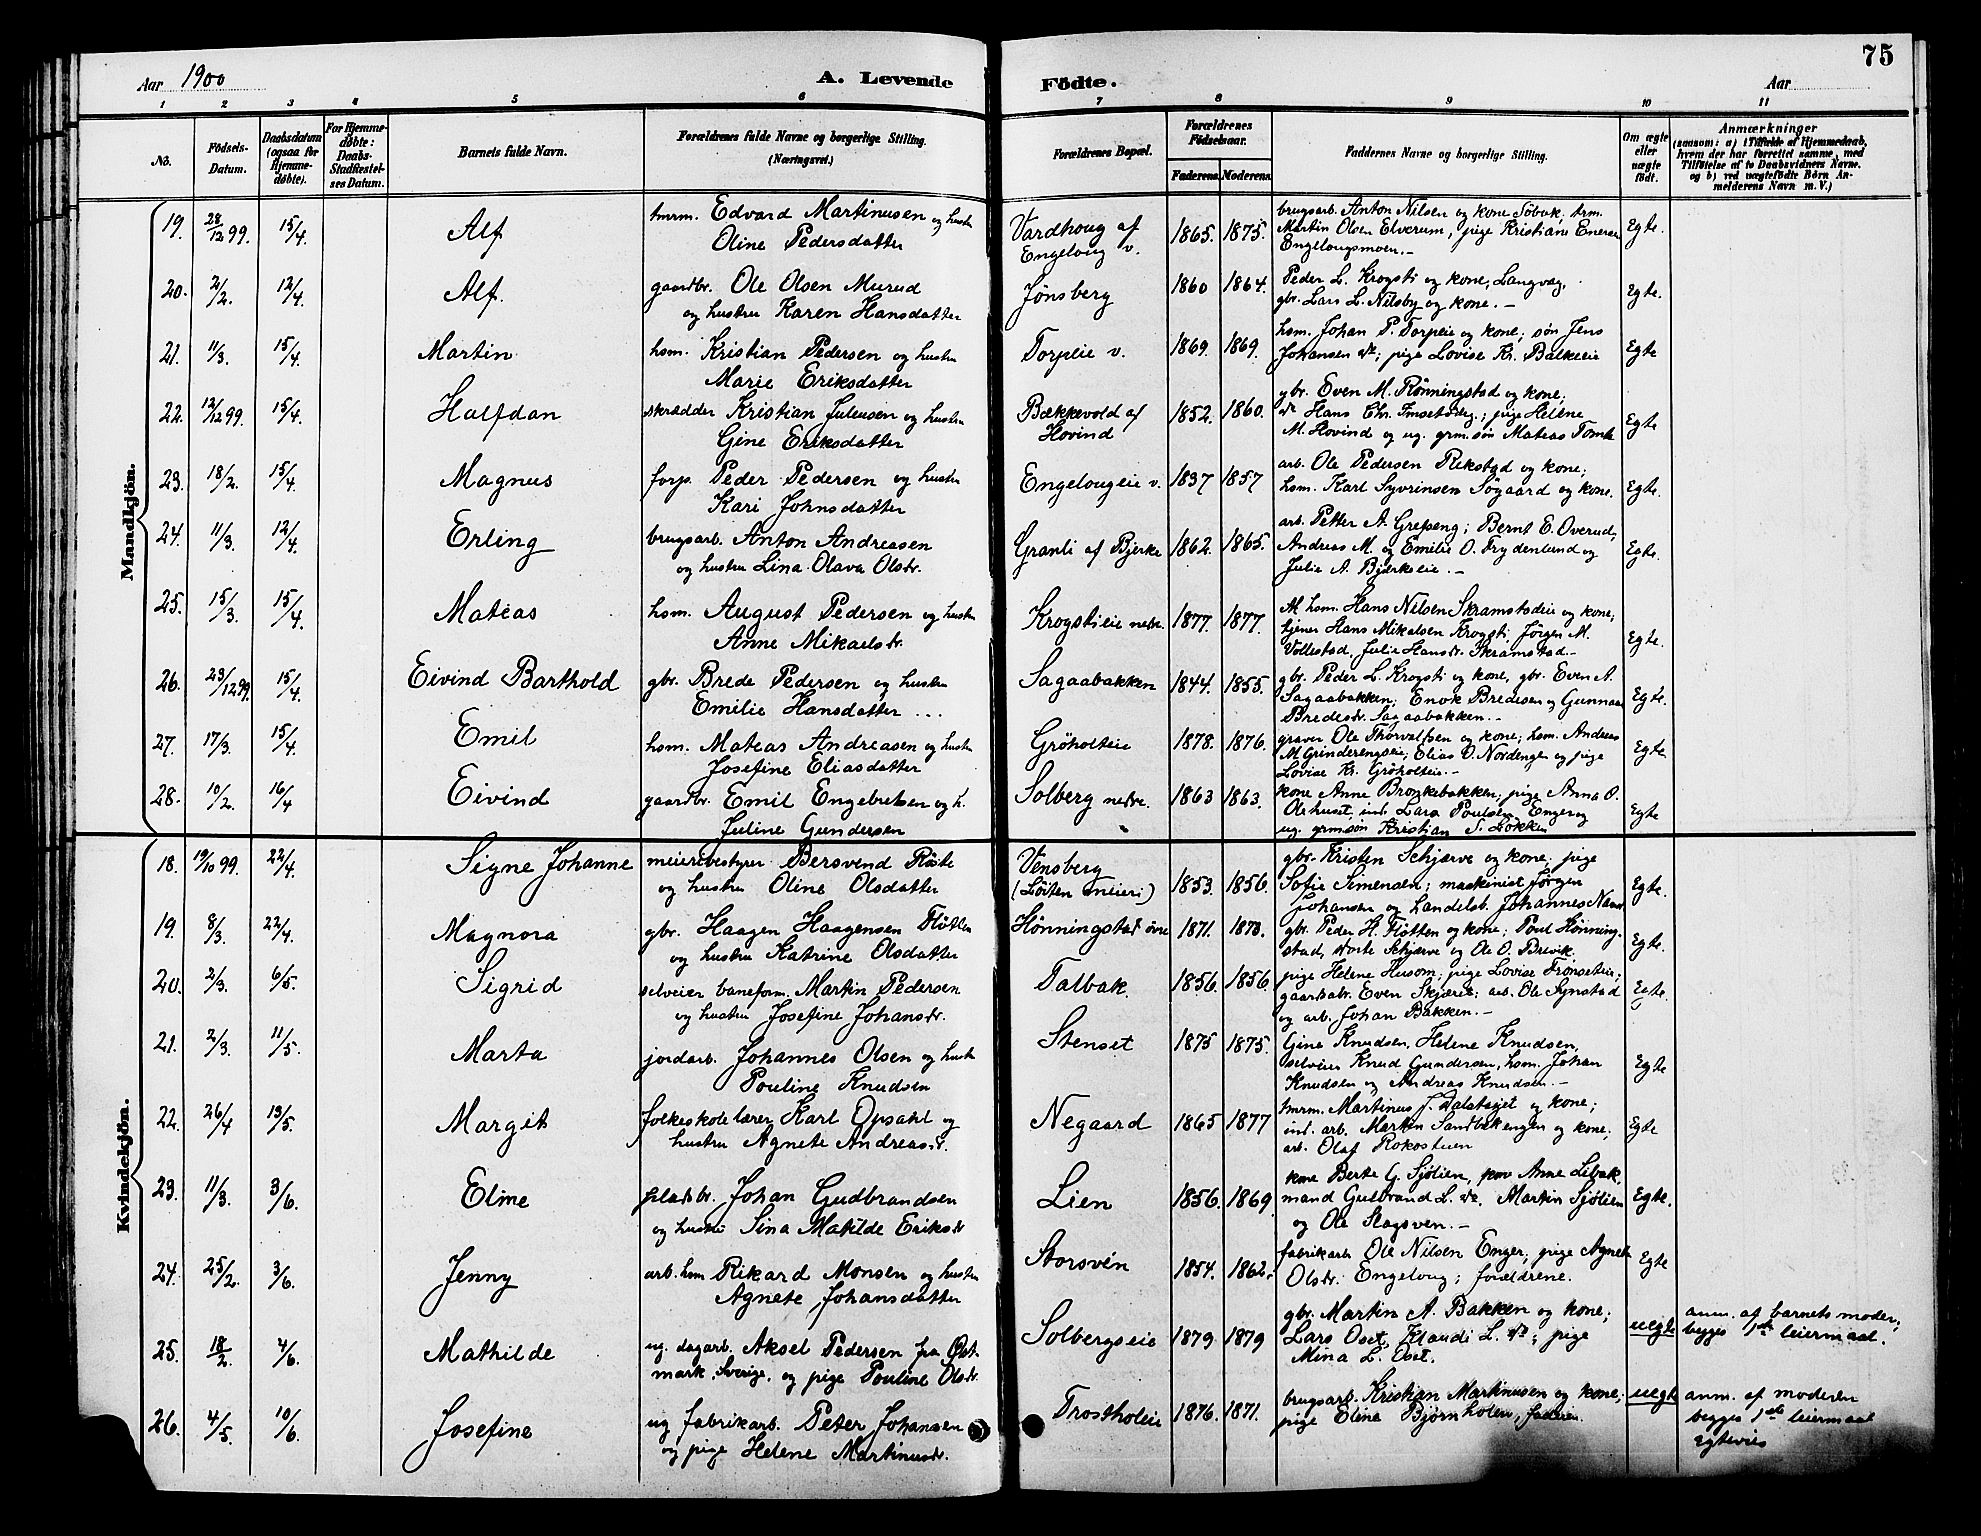 75
Aar 1900
A. Levende
Födte.
Aar
1 2 3 4 5 6 7 8 9 10 11
No.
Födsels-
Datum.
Daabsdatum
(ogsaa for
Hjemme-
døbte).
For Hjemme-
døbte:
Daabs-
Stadfæstel-
ses Datum.
Barnets fulde Navn.
Forældrenes fulde Navne og borgerlige Stilling.
(Næringsvei.)
Forældrenes Bopæl.
Forældrenes
Födselsaar.
Faderens. Moderens.
Faddernes Navne og borgerlige Stilling.
Om ægte
eller
uægte
födt.
Anmærkninger
(saasom: a) i Tilfælde af Hjemmedaab,
hvem der har forrettet samme, med
Tilföielse af to Daabsvidners Navne.
og b) ved uægtefödte Börn An-
melderens Navn m. V.)
Mandkjön.
19. 28/12 99. 15/4. Alf tmrm. Edvard Martinusen og hustru
Oline Pedersdatter
Vardhoug af
Engeloug v.
1865. 1875.
brugsarb. Anton Nilsen og kone Söbak; tmm.
Martin Olsen Elverum, pige Kristiane Eneraa
Engelougsmoen.-
Egte.
20. 2/2. 12/4. Alf. gaardbr. Ole Olsen Murud
og hustru Karen Hansdatter
Jönsberg
1860 1864.
Peder L. Krogsti og kone, Langvag,
gbr. Lars L. Nilsby og kone.-
Egte.
21. 11/3. 15/4. Martin hsm. Kristian Pedersen og hustru
Marie Eriksdatter
Torpeie v.
1869. 1869.
hsm. Johan P. Torpeie og kone; sön Jens
Johansen do; pige Lovise Kr. Balkeeie
Egte
22. 12/12 99. 15/4. Halfdan skrædder Kristian Juleusen og hustru
Gine Eriksdatter
Bækkevold af
Hovind
1852. 1860.
gbr. Even M. Rönningstad og kone;
do Hans Chr. Imsetadeg.; pige Helene
M. Hovind og ug. grm.sön Mateas Tomte
Egte
23. 18/2. 15/4. Magnus forp. Peder Pedersen og hustru
Kari Johnsdatter
Engelougeie v.
1837 1857
arb. Ole Pedersen Rekstad og kone;
hsm. Karl Syvrinsen Sögaard og kone.
Egte.
24. 11/3. 12/4. Erling brugsarb. Anton Andreasen
og hustru Lina Olava Olsdr.
Granli af Bjerke
1862. 1865.
arb. Petter A. Grefseng; Bernt E. Overud,
Andreas M. og Emilie O. Frydenlund og
Julie A. Bjerkeeie.-
Egte.
25. 15/3. 15/4. Mateas hsm. August Pedersen og hustru
Anne Mikaelsdr.
Krogstieie nedre.
1877. 1877.
hsm. Hans Nilsen Skramstadeie og kone,
tjener Hans Mikalsen Krogsti, Jörgen M.
Vollestad, Julie Hansdr. Skramstad.-
Egte.
26. 23/12 99. 15/4. Eivind Barthold gbr. Brede Pedersen og hustru
Emilie Hansdatter ...
Sagaabakken
1844. 1855.
gbr. Peder L. Krogsti og kone, gbr. Even A.
Sagaabakken; Enok Bredesen og Gunnar
Bredesdr. Sagaabakken.-
Egte.
27. 17/3. 15/4. Emil hsm. Mateas Andreasen og hustru
Josefine Eliasdatter
Gröholteie
1878. 1876.
graver Ole Thorvalfsen og kone; hsm. Andreas
M. Grinderengseie; Elias O. Nordengen og pige
Lovise Kr. Gröholteie.-
Egte
28. 10/2. 16/4 Eivind gaardbr. Emil Engebretsen og h.
Juline Gundersen
Solberg nedre.
1863 1863.
kone Anne Bronkebakken; pige Anna O.
Olehuset, ind. Lars Poulsen Enger og
ug. grmsön Kristian S. Lökken
Egte
Kvindekjön.
18. 19/10 99. 22/4. Signe Johanne meieribestyrer Bersvend Röste
og hustru Oline Olsdatter
Vensberg
(Löiten meieri)
1853. 1856.
gbr. Kristen Schjærve og kone; pige
Sofie Simensen; maskinist Jörgen
Johansen og handelsb. Johannes Næss
Egte.
19. 8/3. 22/4. Magnora gbr. Haagen Haagensen Flötten
og hustru Katrine Olsdatter
Hönningstad övre
1871. 1873.
gbr. Peder H. Flötten og kone; Poul Hönning-
stad, Dorte Schjærve og Ole O. Brevik.
Egte.
20. 2/3. 6/5. Sigrid selveier baneform. Martin Pedersen
og hustru Josefine Johansdr.
Talbak.
1856. 1856.
pige Helene Husom; pige Lovise Fronseteie;
gaardsbr. Even Skjærve; arb. Ole Synstad
og arb. Johan Bakken.-
Egte.
21. 2/3. 11/5. Marta jordarb. Johannes Olsen og hustr
Pouline Knudsen
Stenset
1875 1875.
Gina Knudsen, Helene Knudsen,
selveier Knud Gundersen, hsm. Johan
Knudsen og Andreas Knudsen.-
Egte
22. 26/4 13/5. Margit folkeskolelærer Karl Opsahl og
hustru Agnete Andreasdr.
Negaard
1865 1877
tmrm. Martinus J. Dalstøyet og kone;
ind. arb. Martin Sandbækengen og kone,
arb. Olaf Rokostuen
Egte
23. 11/3. 3/6. Eline pladsbr. Johan Gudbrandsen
og hustru Sina Matilde Eriksdr
Lien
1856. 1869.
kone Berte G. Sjölien, kone Anne Libak,
mand Gulbrand L. do. Martin Sjölien
og Ole Slagsven.-
Egte.
24. 25/2. 3/6. Jenny arb. hsm Rikard Monsen og hustru
Agnete Johansdatter
Storsvén
1854. 1862.
fabrikarb. Ole Nilsen Enger; pige Agnete
Olsdr. Engeloug; forældrene.
Egte
25. 18/2. 4/6. Mathilde ug. dagarb. Aksel Pedersen fra Öst-
mark, Sverige, og pige Pouline Olsdr.
Solbergseie
1879. 1879
gbr. Martin A. Bakken og kone;
Lars Oset, Klaudi L. do; pige
Mina L. Oset.
uegte
anm. af barnets moder,
begges 1ste leiermaal.
26. 4/5. 10/6. Josefine ug fabrikarb. Peter Johansen
og pige Helene Martinusdr.
Trostholeie
1876. 1871.
brugsarb. Kristian Martinusen og kone;
pige Eline Björnholen, faderen.
uegte
anm. af moderen
begges 1ste leiermaal
egtevies